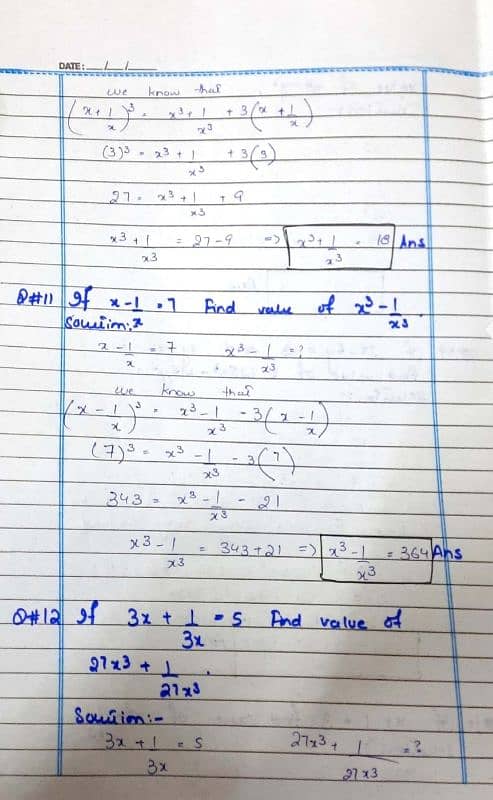 DATE: __/__/__
we know that
(x + 1/x)³ = x³ + 1/x³ + 3(x + 1/x)
(3)³ = x³ + 1/x³ + 3(3)
27 = x³ + 1/x³ + 9
x³ + 1/x³ = 27 - 9 => x³ + 1/x³ = 18 Ans
Q#11 If x - 1/x = 7 Find value of x³ - 1/x³.
Solution:
x - 1/x = 7 x³ - 1/x³ = ?
we know that
(x - 1/x)³ = x³ - 1/x³ - 3(x - 1/x)
(7)³ = x³ - 1/x³ - 3(7)
343 = x³ - 1/x³ - 21
x³ - 1/x³ = 343 + 21 => x³ - 1/x³ = 364 Ans
Q#12 If 3x + 1/3x = 5 Find value of
27x³ + 1/27x³.
Solution:-
3x + 1/3x = 5 27x³ + 1/27x³ = ?